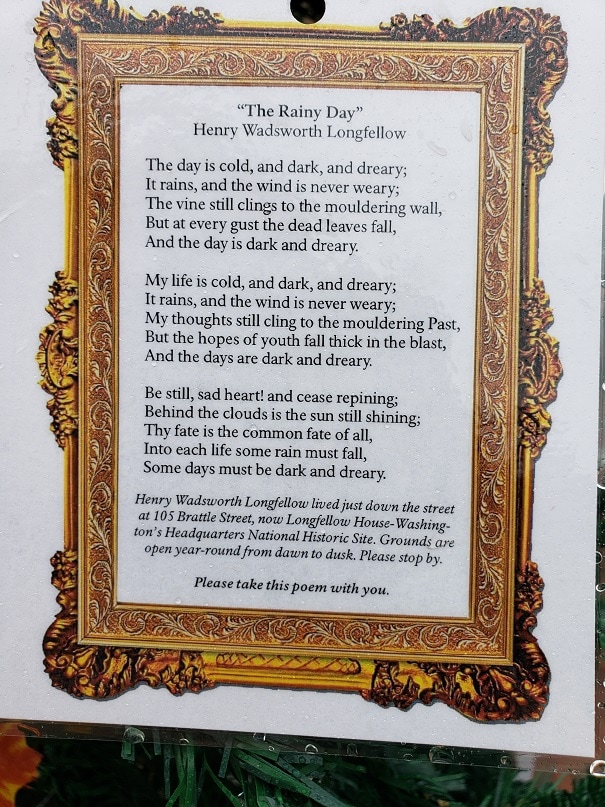 "The Rainy Day"
Henry Wadsworth Longfellow
The day is cold, and dark, and dreary;
It rains, and the wind is never weary;
The vine still clings to the mouldering wall,
But at every gust the dead leaves fall,
And the day is dark and dreary.
My life is cold, and dark, and dreary;
It rains, and the wind is never weary;
My thoughts still cling to the mouldering Past,
But the hopes of youth fall thick in the blast,
And the days are dark and dreary.
Be still, sad heart! and cease repining;
Behind the clouds is the sun still shining;
Thy fate is the common fate of all,
Into each life some rain must fall,
Some days must be dark and dreary.
Henry Wadsworth Longfellow lived just down the street
at 105 Brattle Street, now Longfellow House-Washing-
ton's Headquarters National Historic Site. Grounds are
open year-round from dawn to dusk. Please stop by.
Please take this poem with you.